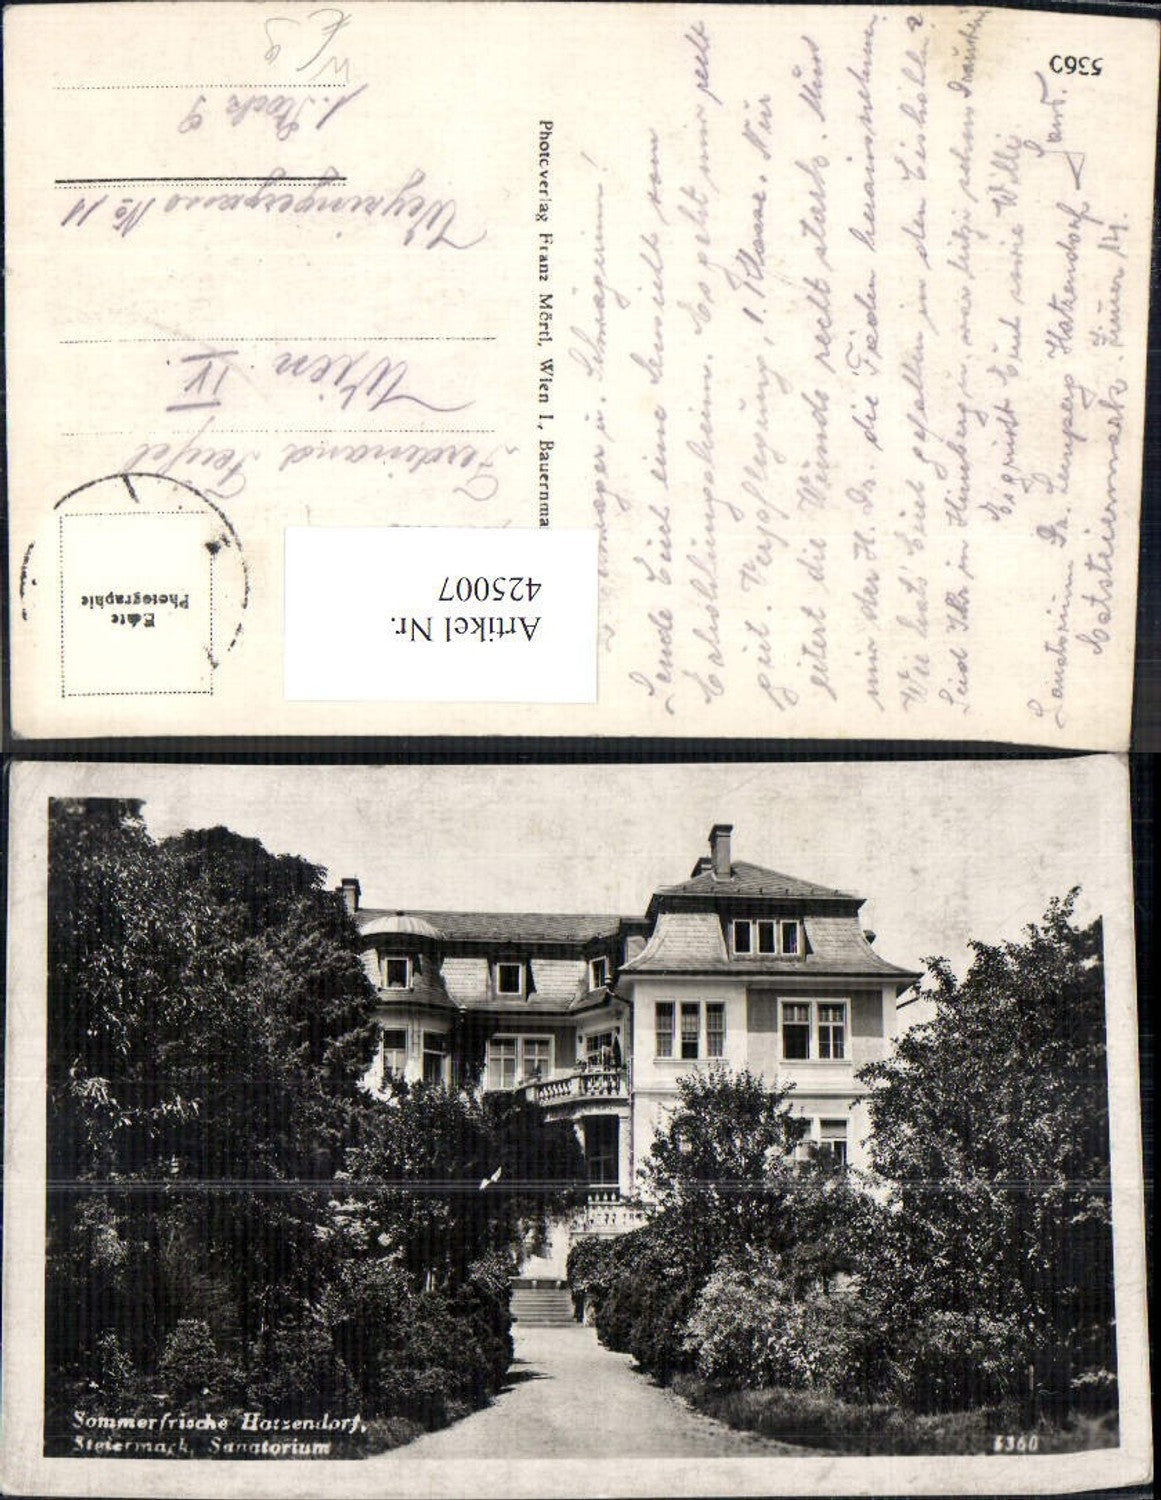 5360
L. Schwager u. Schwägerin!
Sende Euch eine Ansicht vom
Erholungsheim. Es geht mir recht
gut. Verpflegung, 1. Klasse. Nur
eitert die Wunde recht stark. Muss
mir der H. Dr. die Fäden herausnehmen.
Wie hats Euch gefallen in den Eishöhlen?
Seid Ihr in
Es grüsst Euch sowie Willi
Sanatorium Dr. Hatzendorf
Oststeiermark. Zimmer 14.
Photoverlag Franz Mörtl, Wien I., Bauernma
Echte
Photographie
Ferdinand Teufel
Wien IV.
Weyringergasse No 11
1. Stock 9
Artikel Nr.
425007
Sommerfrische Hatzendorf,
Steiermark, Sanatorium
5360